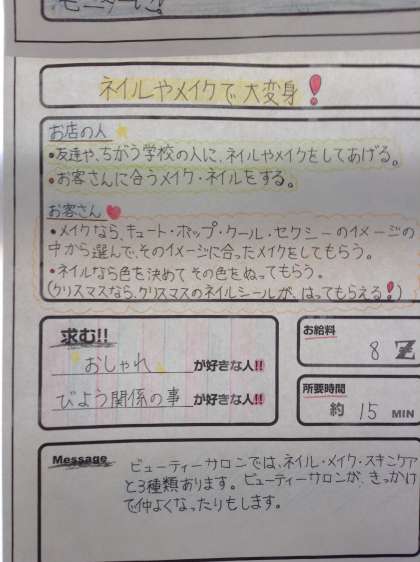 モニターに!
ネイルやメイクで大変身!
お店の人
・友達や、ちがう学校の人に、ネイルやメイクをしてあげる。
・お客さんに合うメイク・ネイルをする。
お客さん
・メイクなら、キュート・ポップ・クール・セクシーのイメージの
中から選んで、そのイメージに合ったメイクをしてもらう。
・ネイルなら色を決めてその色をぬってもらう。
(クリスマスなら、クリスマスのネイルシールが、はってもらえる!)
求む!!
おしゃれが好きな人!!
びよう関係の事が好きな人!!
お給料
8
所要時間
約 15 MIN
Message
ビューティーサロンでは、ネイル・メイク・スキンケア
と3種類あります。ビューティーサロンが、きっかけ
で仲よくなったりもします。